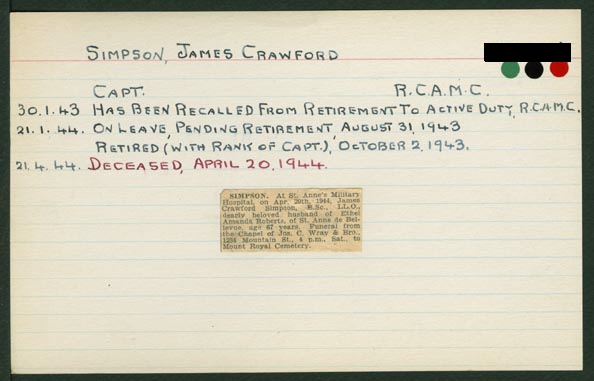 SIMPSON, JAMES CRAWFORD
CAPT. R.C.A.M.C.
30.1.43 HAS BEEN RECALLED FROM RETIREMENT TO ACTIVE DUTY, R.C.A.M.C.
21.1.44. ON LEAVE, PENDING RETIREMENT, AUGUST 31, 1943
RETIRED (WITH RANK OF CAPT.), OCTOBER 2, 1943.
21.4.44. DECEASED, APRIL 20, 1944.
SIMPSON. At St. Anne's Military
Hospital, on Apr. 20th, 1944, James
Crawford Simpson, B.Sc., LL.O.,
dearly beloved husband of Ethel
Amanda Roberts, of St. Anne de Bel-
levue, age 67 years. Funeral from
the Chapel of Jos. C. Wray & Bro.,
1234 Mountain St., 4 p.m., Sat., to
Mount Royal Cemetery.